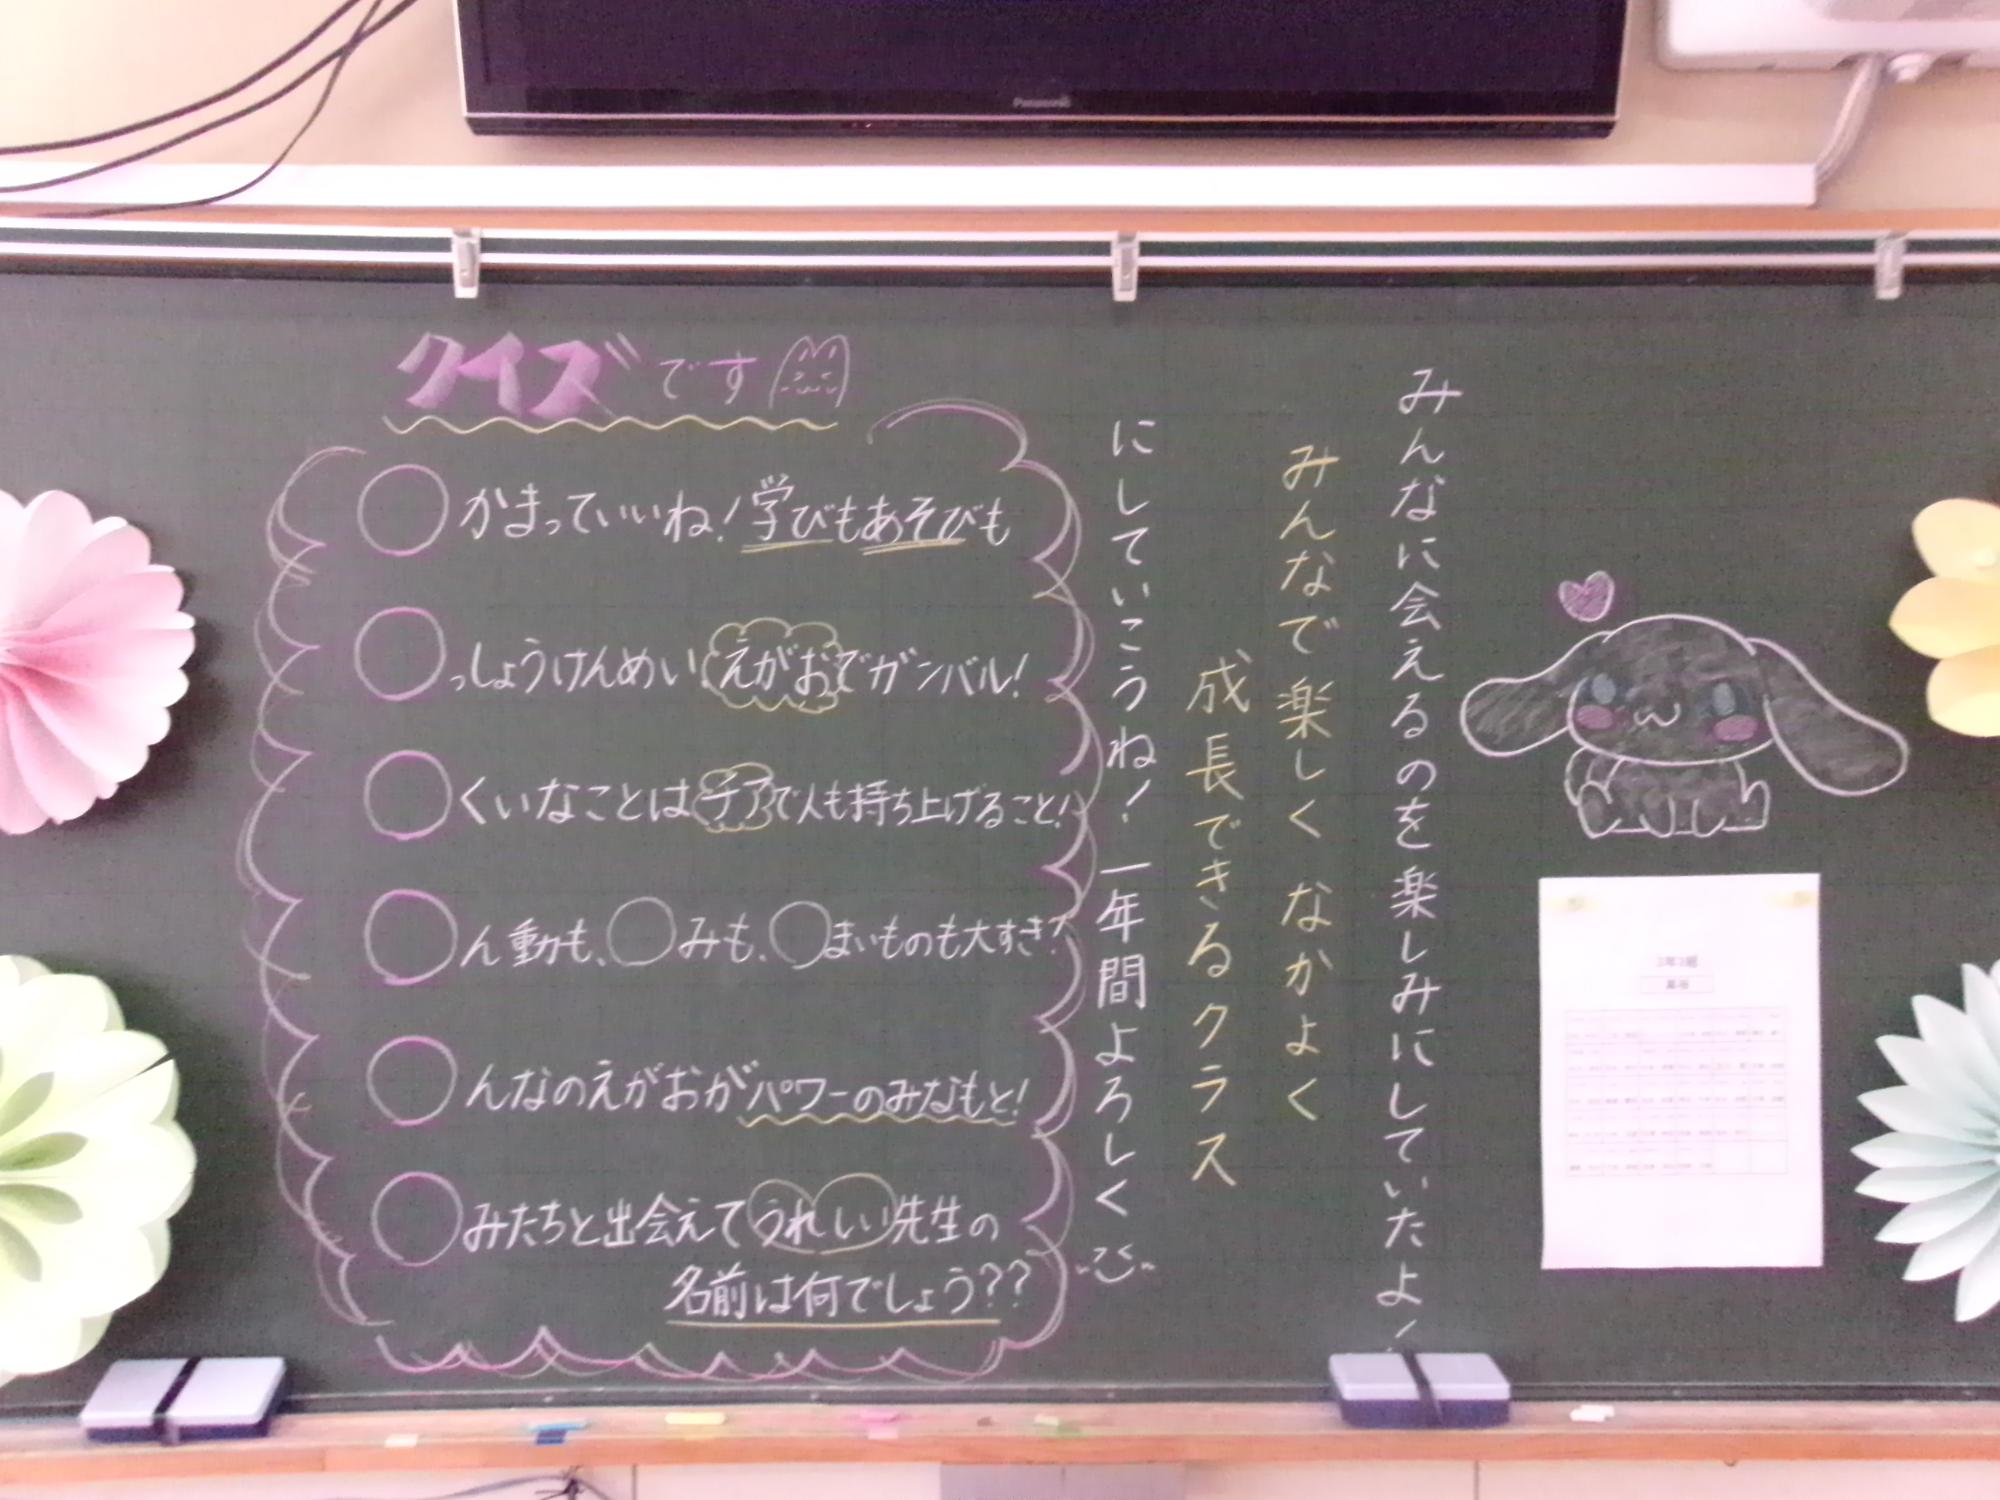 Panasonic
クイズです
○かまっていいね！学びもあそびも
○っしょうけんめいえがおでガンバル！
○くいなことはチアで人も持ち上げること！
○ん動も、○みも、○まいものも大すき？
○んなのえがおがパワーのみなもと！
○みたちと出会えてうれしい先生の
名前は何でしょう？？
みんなに会えるのを楽しみにしていたよ！
みんなで楽しくなかよく
成長できるクラス
にしていこうね！一年間よろしく